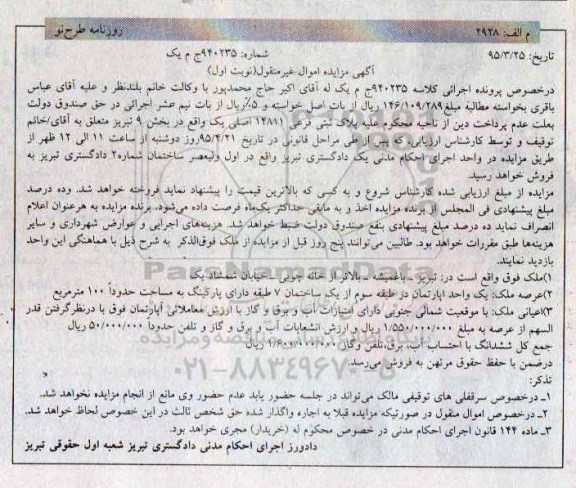 م الف: ۲۹۲۸
روزنامه طرح‌نو
تاریخ: ۹۵/۳/۲۵
شماره: ۹۴۰۲۳۵ج م یک
آگهی مزایده اموال غیرمنقول(نوبت اول)
درخصوص پرونده اجرائی کلاسه ۹۴۰۲۳۵ج م یک له آقای اکبر حاج محمدپور با وکالت خانم بلندنظر و علیه آقای عباس
باقری بخواسته مطالبه مبلغ ۱۴۶/۱۰۹/۲۸۹ ریال از بات اصل خواسته و ۵٪ریال از بات نیم عشر اجرائی در حق صندوق دولت
بعلت عدم پرداخت دین از ناحیه محکوم علیه پلاک ثبتی فرعی ۱۴۸۱۱ اصلی یک واقع در بخش ۹ تبریز متعلق به آقای/خانم
توقیف و توسط کارشناس ارزیابی، که پس از طی مراحل قانونی در تاریخ ۹۵/۴/۲۱روز دوشنبه از ساعت ۱۱ الی ۱۲ ظهر از
طریق مزایده در واحد اجرای احکام مدنی یک دادگستری تبریز واقع در اول ولیعصر ساختمان شماره۲ دادگستری تبریز به
فروش خواهد رسید.
مزایده از مبلغ ارزیابی شده کارشناس شروع و به کسی که بالاترین قیمت را پیشنهاد نماید فروخته خواهد شد. وده درصد
مبلغ پیشنهادی فی المجلس از برنده مزایده اخذ و به مابقی حداکثر یک‌ماه فرصت داده می‌شود. برنده مزایده به هرعنوان اعلام
انصراف نماید ده درصد مبلغ پیشنهادی بنفع صندوق دولت ضبط خواهد شد. هزینه‌های اجرایی و عوارض شهرداری و سایر
هزینه‌ها طبق مقررات خواهد بود. طالبین می‌توانند پنج روز قبل از مزایده از ملک فوق‌الذکر به شرح ذیل با هماهنگی این واحد
بازدید نمایند.
۱)ملک فوق واقع است در: تبریز ـ باغمیشه ـ بالاتر از خانه جنوبی ـ خیابان شمشاد یک
۲)عرصه ملک: یک واحد آپارتمان در طبقه سوم از یک ساختمان ۷ طبقه دارای پارکینگ به مساحت حدوداً ۱۰۰ مترمربع
۳)اعیانی ملک: با موقعیت شمالی جنوبی دارای امتیازات آب و برق و گاز با ارزش معاملاتی آپارتمان فوق با درنظرگرفتن قدر
السهم از عرصه به مبلغ ۱/۵۵۰/۰۰۰/۰۰۰ ریال و ارزش انشعابات آب و برق و گاز و تلفن حدوداً ۵۰/۰۰۰/۰۰۰ ریال
جمع کل ششدانگ با احتساب آب، برق، تلفن و گاز ۱/۶۰۰/۰۰۰/۰۰۰ ریال
درضمن با حفظ حقوق مرتهن به فروش می‌رسد.
تذکر:
۱ـ درخصوص سرقفلی های توقیفی مالک می‌تواند در جلسه حضور یابد عدم حضور وی مانع از انجام مزایده نخواهد شد.
۲ـ درخصوص اموال منقول در صورتیکه مزایده قبلا به اجاره واگذار شده حق شخص ثالث در این خصوص لحاظ خواهد شد.
۳ـ ماده ۱۴۴ قانون اجرای احکام مدنی در خصوص محکوم له (خریدار) مجری خواهد بود.
دادورز اجرای احکام مدنی دادگستری تبریز شعبه اول حقوقی تبریز
ParsNamadData
۰۲۱-۸۸۳۴۹۶۷۰-۵